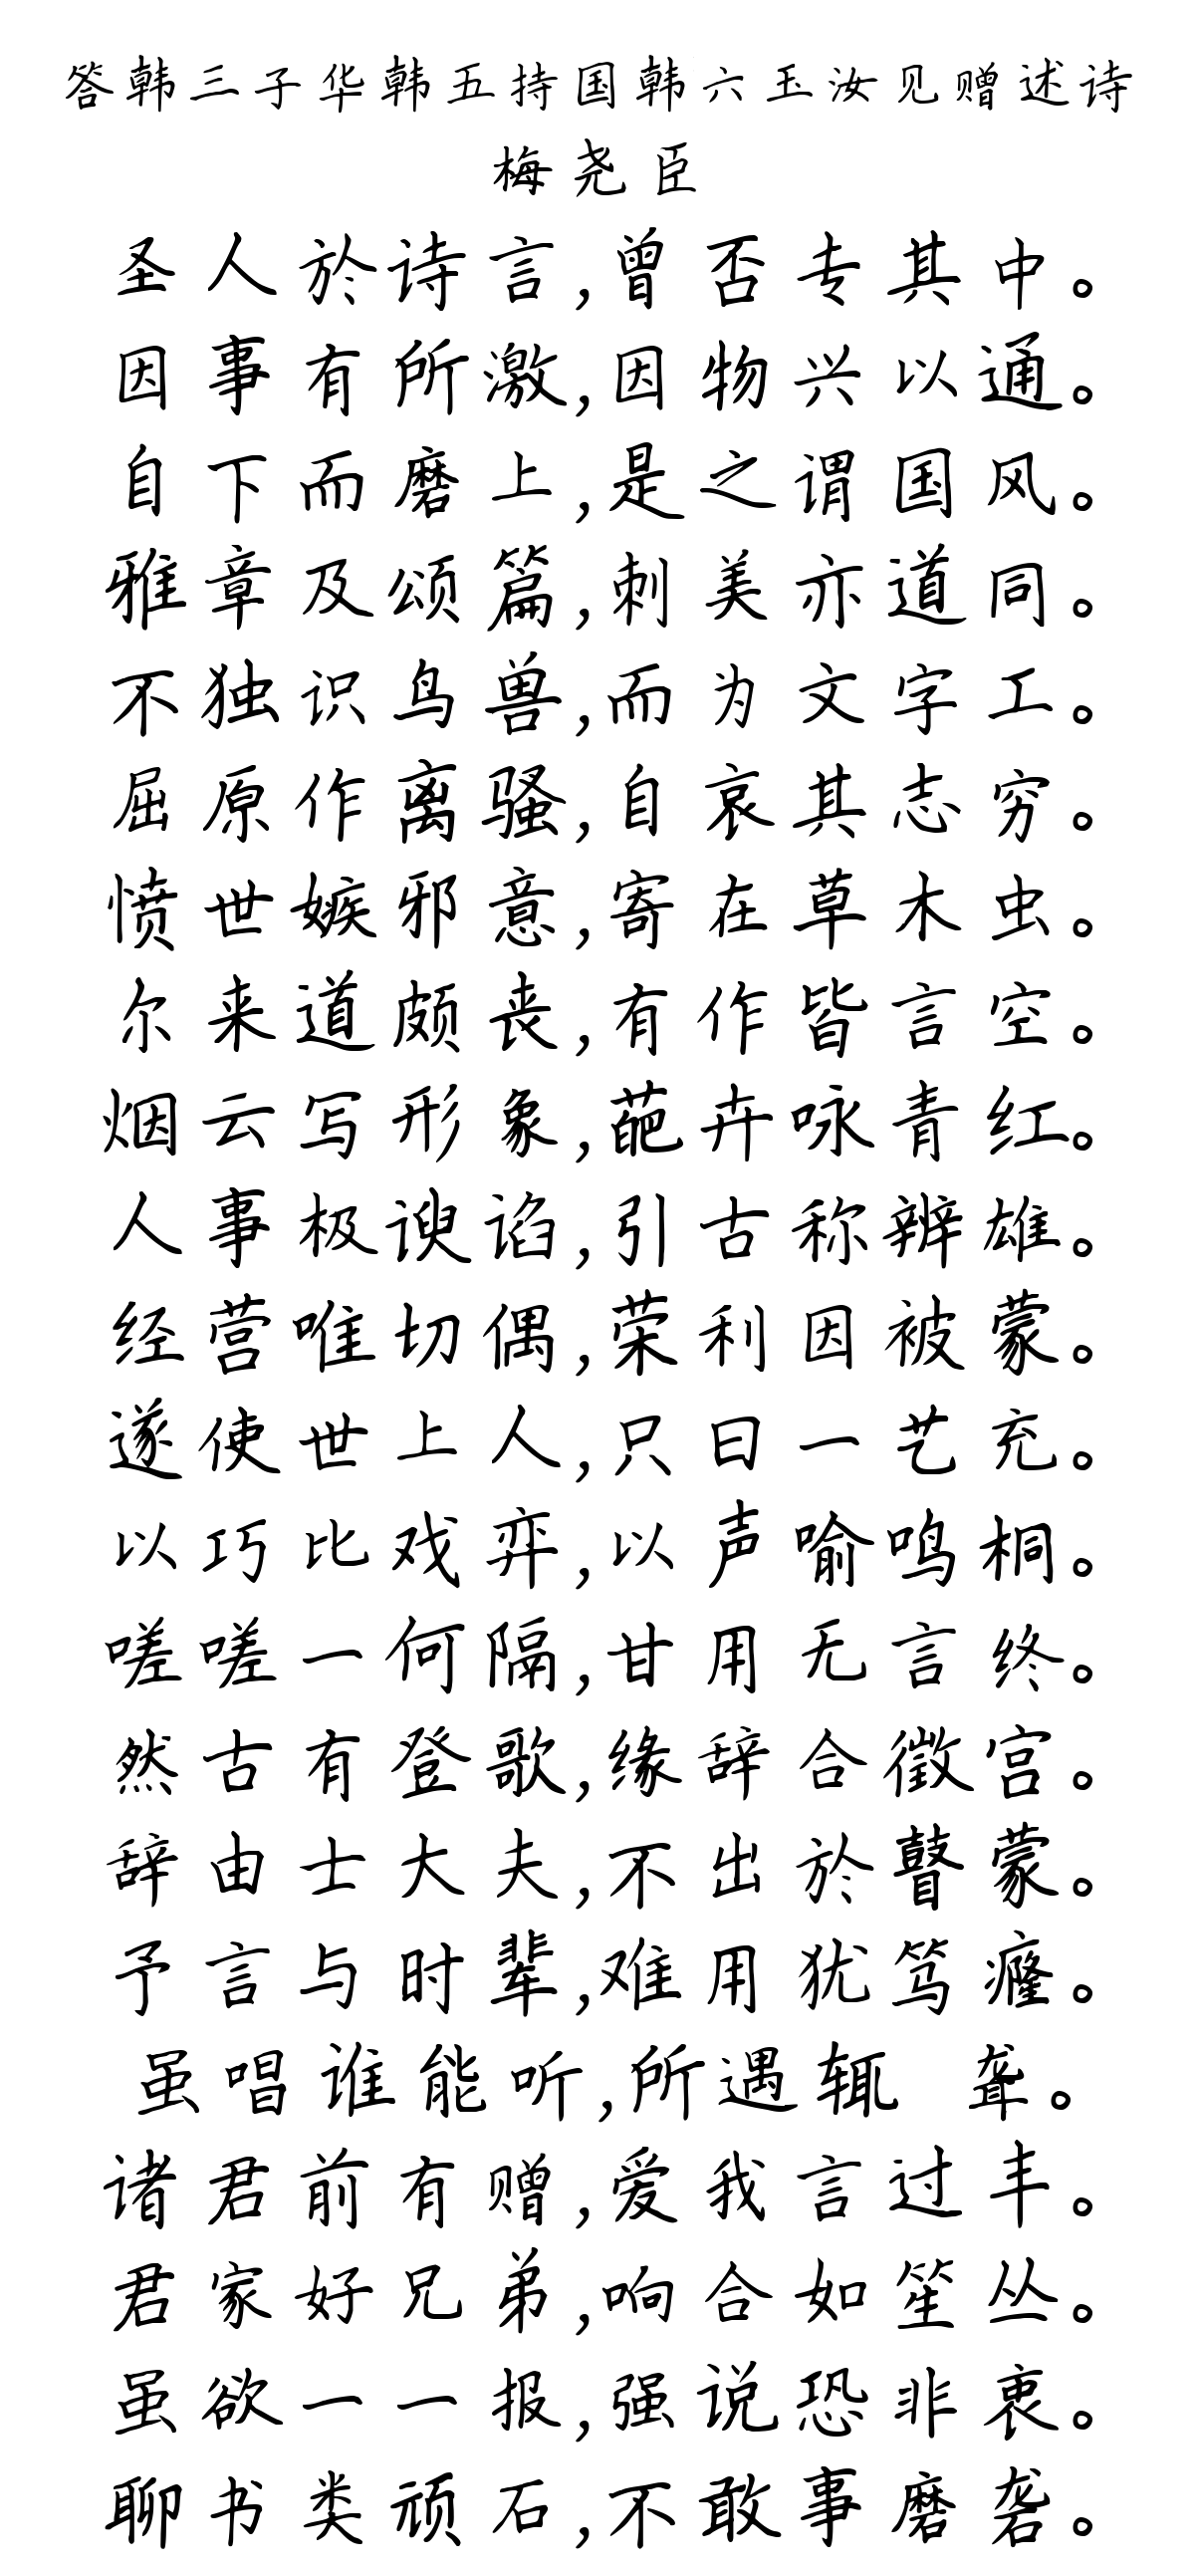 答韩三子华韩五持国韩六玉汝见赠述诗
梅尧臣
圣人於诗言,曾否专其中。
因事有所激,因物兴以通。
自下而磨上,是之谓国风。
雅章及颂篇,刺美亦道同。
不独识鸟兽,而为文字工。
屈原作离骚,自哀其志穷。
愤世嫉邪意,寄在草木虫。
尔来道颇丧,有作皆言空。
烟云写形象,葩卉咏青红。
人事极谀谄,引古称辨雄。
经营唯切偶,荣利因被蒙。
遂使世上人,只曰一艺充。
以巧比戏弈,以声喻鸣桐。
嗟嗟一何隔,甘用无言终。
然古有登歌,缘辞合徵宫。
辞由士大夫,不出於瞽蒙。
予言与时辈,难用犹笃癃。
虽唱谁能听,所遇辄 聋。
诸君前有赠,爱我言过丰。
君家好兄弟,响合如笙丛。
虽欲一一报,强说恐非衷。
聊书类顽石,不敢事磨砻。